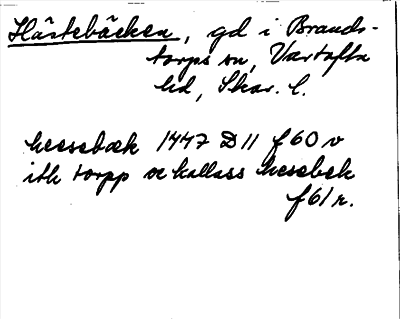 Hästebäcken, gd i Brands-
torps sn, Vartofta
hd, Skar. l.
hessebæk 1447 D 11 f 60 v
ith torpp oc kallass hesebek
f 61 r.